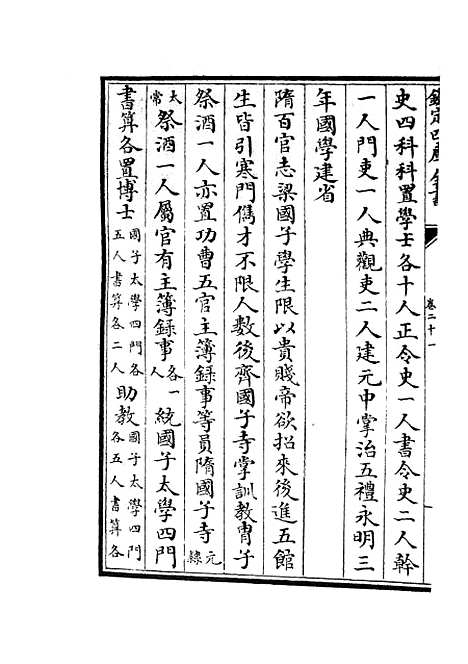 欽定四庫全書
卷二十一
史四科科置學士各十人正令史一人書令史二人幹
一人門吏一人典觀吏二人建元中掌治五禮永明三
年國學建省
隋百官志梁國子學生限以貴賤帝欲招來後進五館
生皆引寒門儁才不限人數後齊國子寺掌訓教胄子
祭酒一人亦置功曹五官主簿錄事等員隋國子寺元隸
太常祭酒一人屬官有主簿錄事各一人統國子太學四門
書算各置博士國子太學四門各五人書算各二人助教國子太學四門各五人書算各